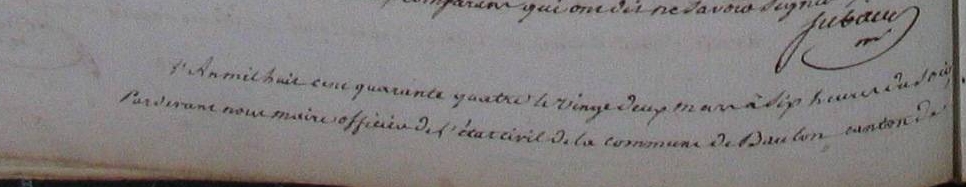 comparans qui ont dit ne savoir signer
L'An mil huit cent quarante quatre le vingt deux mars à six heures du soir
Pardevant nous maire officier de l'état civil de la commune de Baulon canton de